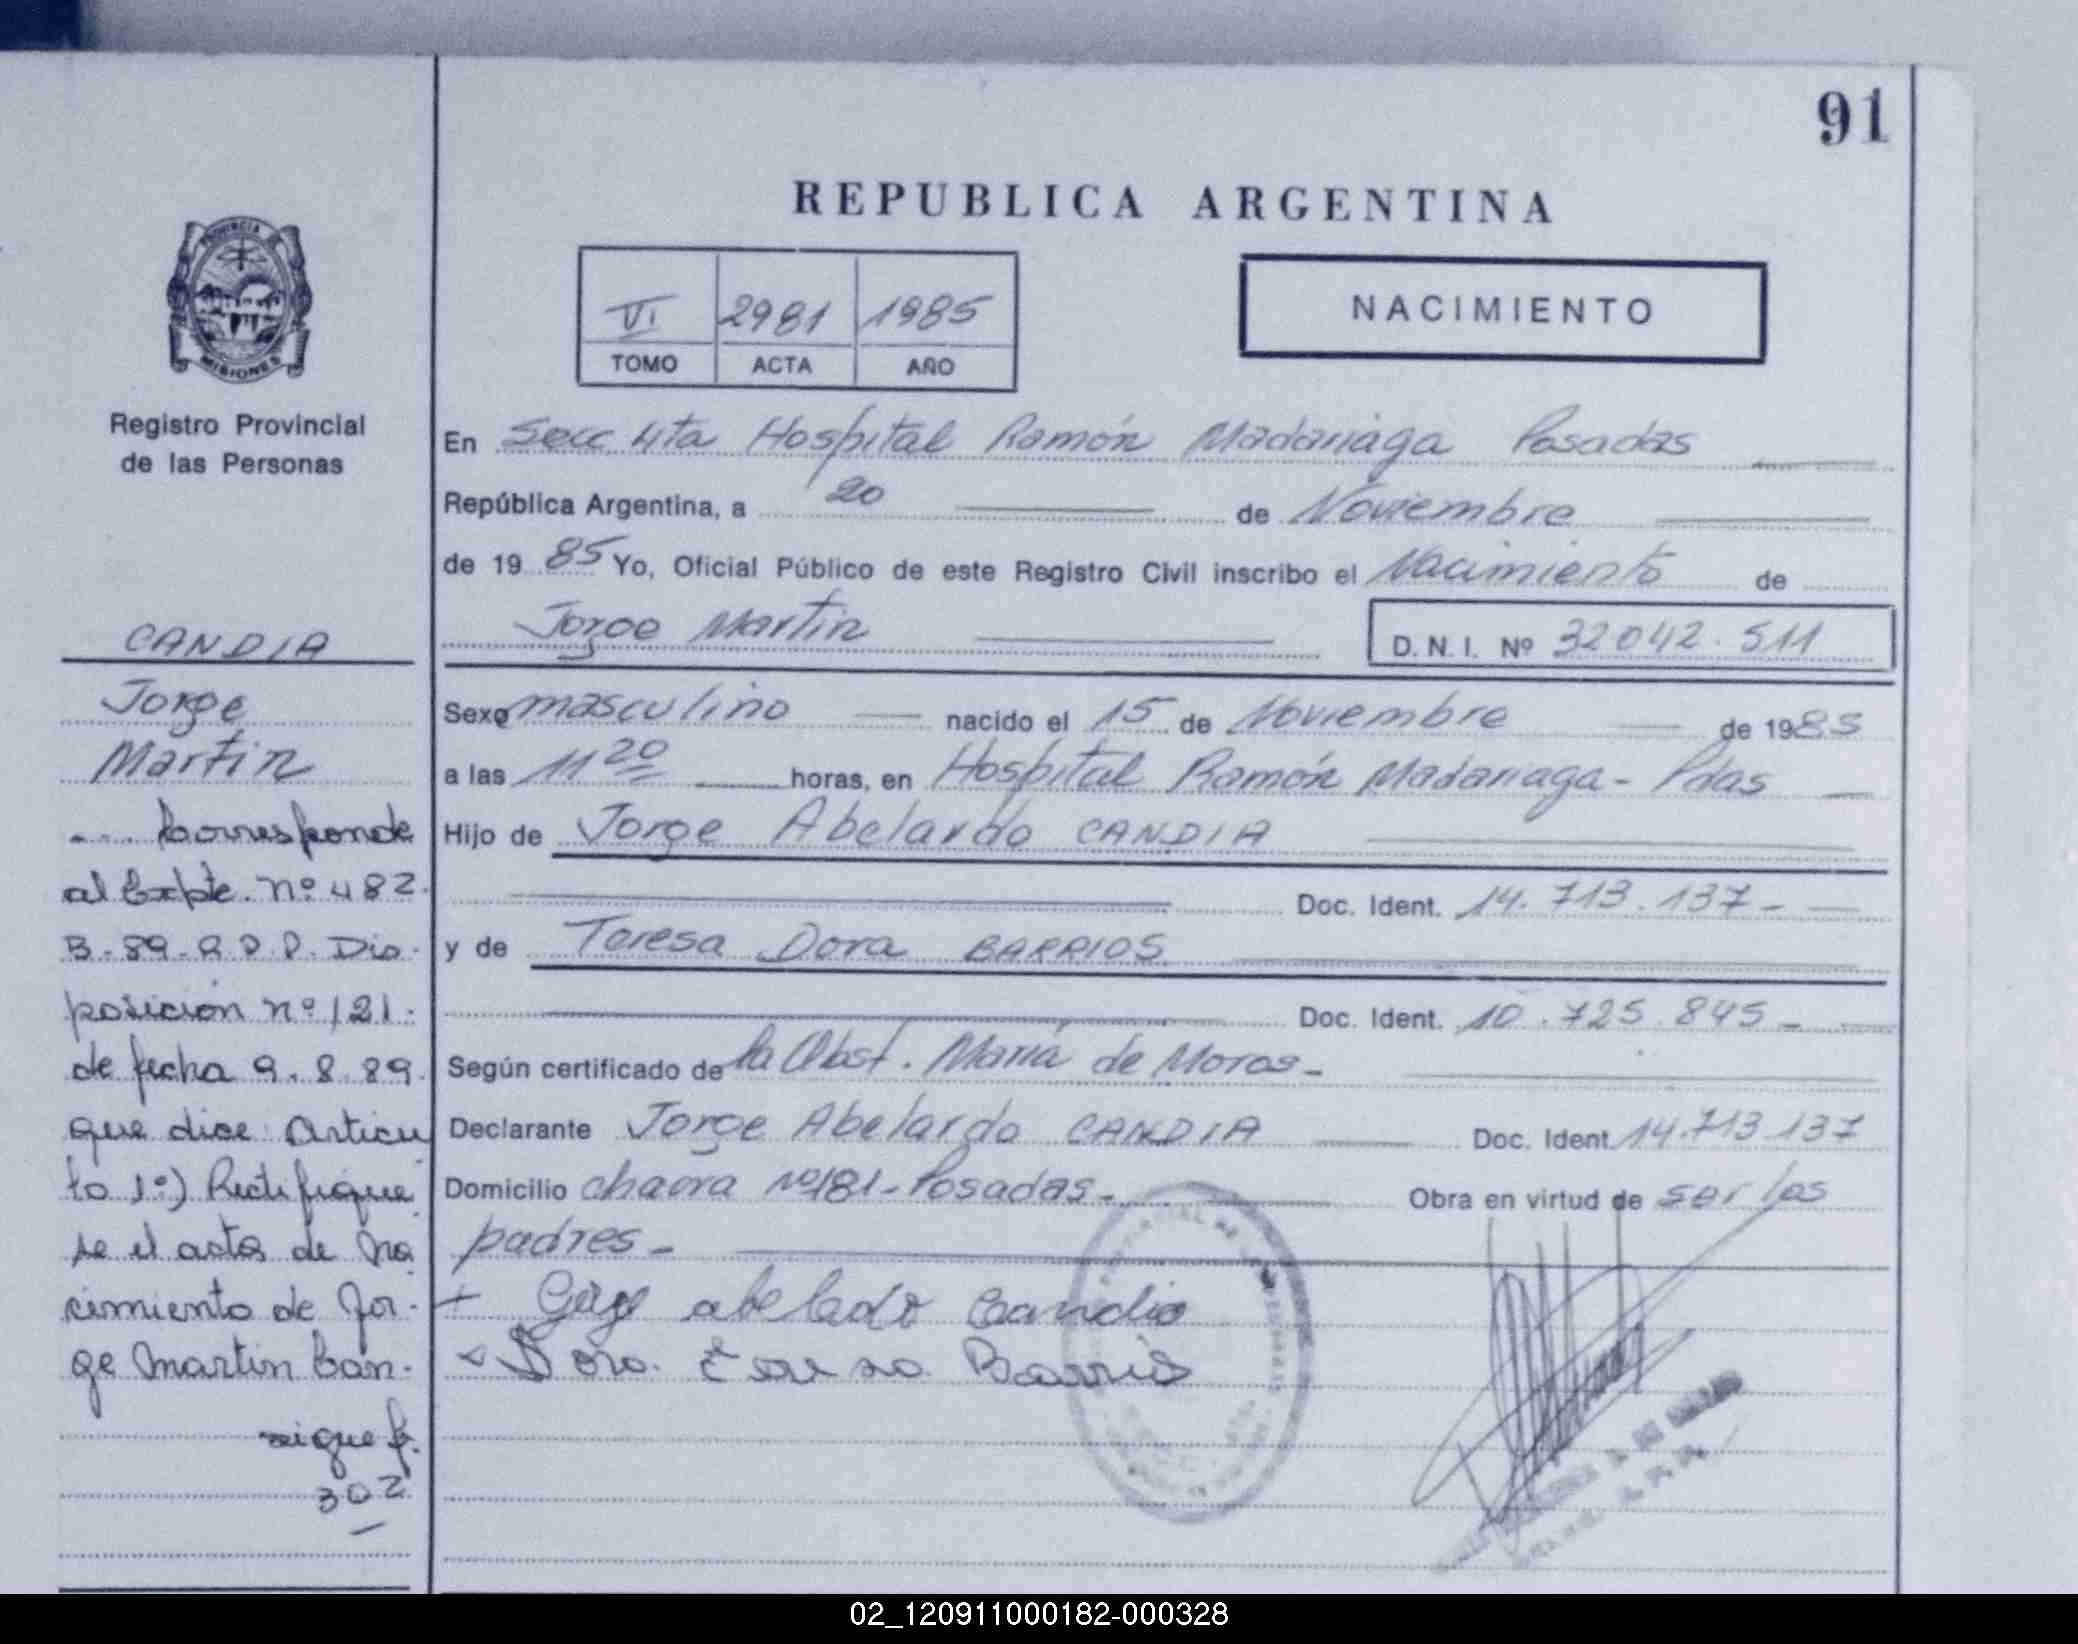 91
REPUBLICA ARGENTINA
PROVINCIA DE
MISIONES
Registro Provincial
de las Personas
VI 2981 1985
TOMO ACTA AÑO
NACIMIENTO
En Secc 4ta Hospital Ramón Madariaga Posadas
República Argentina, a 20 de Noviembre
de 19 85 Yo, Oficial Público de este Registro Civil inscribo el Nacimiento de
Jorge Martin D. N. I. Nº 32042.511
Sexo masculino nacido el 15 de Noviembre de 1985
a las 11 20 horas, en Hospital Ramón Madariaga - Pdas
Hijo de Jorge Abelardo CANDIA
Doc. Ident. 14.713.137-
y de Teresa Dora BARRIOS
Doc. Ident. 10.725.845-
Según certificado de la Obst. María de Moras-
Declarante Jorge Abelardo CANDIA Doc. Ident. 14.713.137
Domicilio chacra Nº181-Posadas- Obra en virtud de ser los
padres-
abelado Candia
Dora Barrios
CANDIA
Jorge
Martin
Corresponde
al Expte. nº 482.
B-89-R.P.P. Dis-
posición nº 121-
de fecha 9.8.89.
que dice: Artícu
lo 1º) Rectifíque
se el acta de Na
cimiento de Jor-
ge Martin Can-
sigue f.
302
02_120911000182-000328